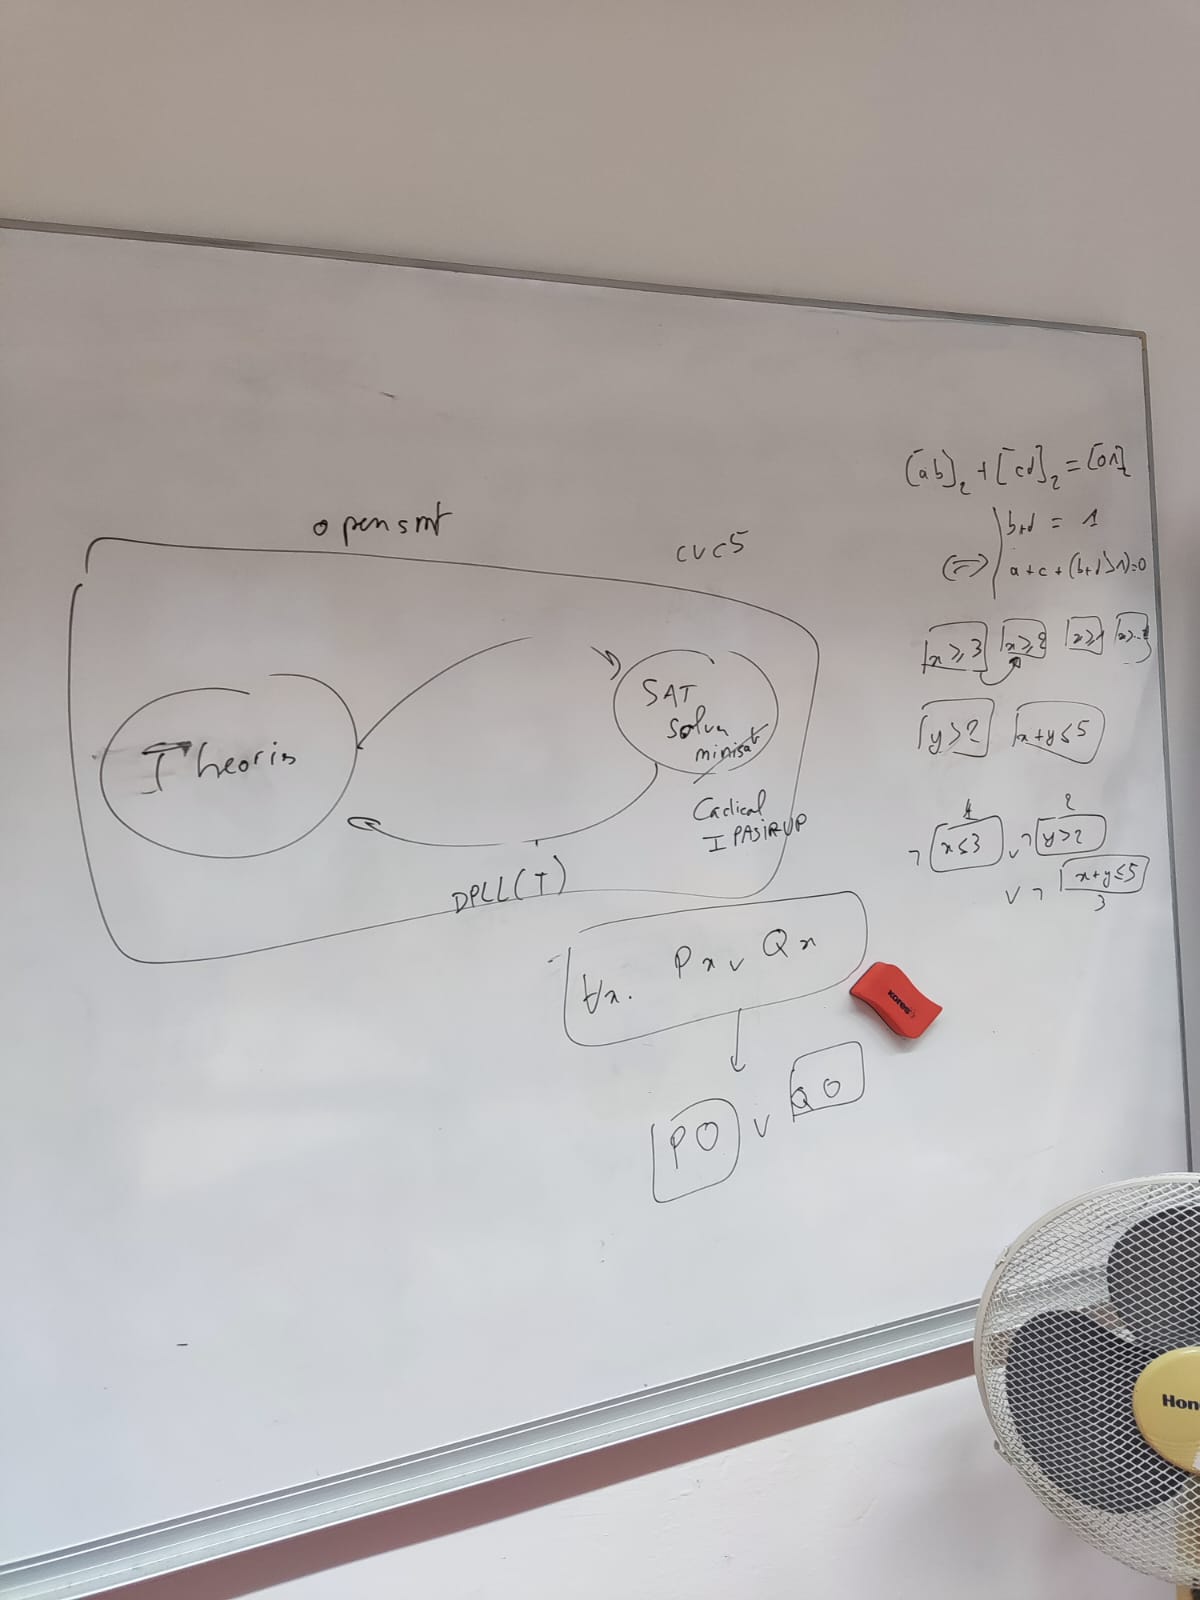 opensmt
cvc5
Theories
SAT
solver
minisat
Cadical
IPASIR-UP
DPLL(T)
∀x. Px ∨ Qx
P0 ∨ Q0
[ab]₂ + [cd]₂ = [01]₂
b+d = 1
(=) a+c+(b+d>1)=0
x≥3 x≥2 x≥1
y>2 x+y≤5
¬ x≤3 ∨ ¬ y>2
2
∨ ¬ x+y≤5
3
kores
Hon